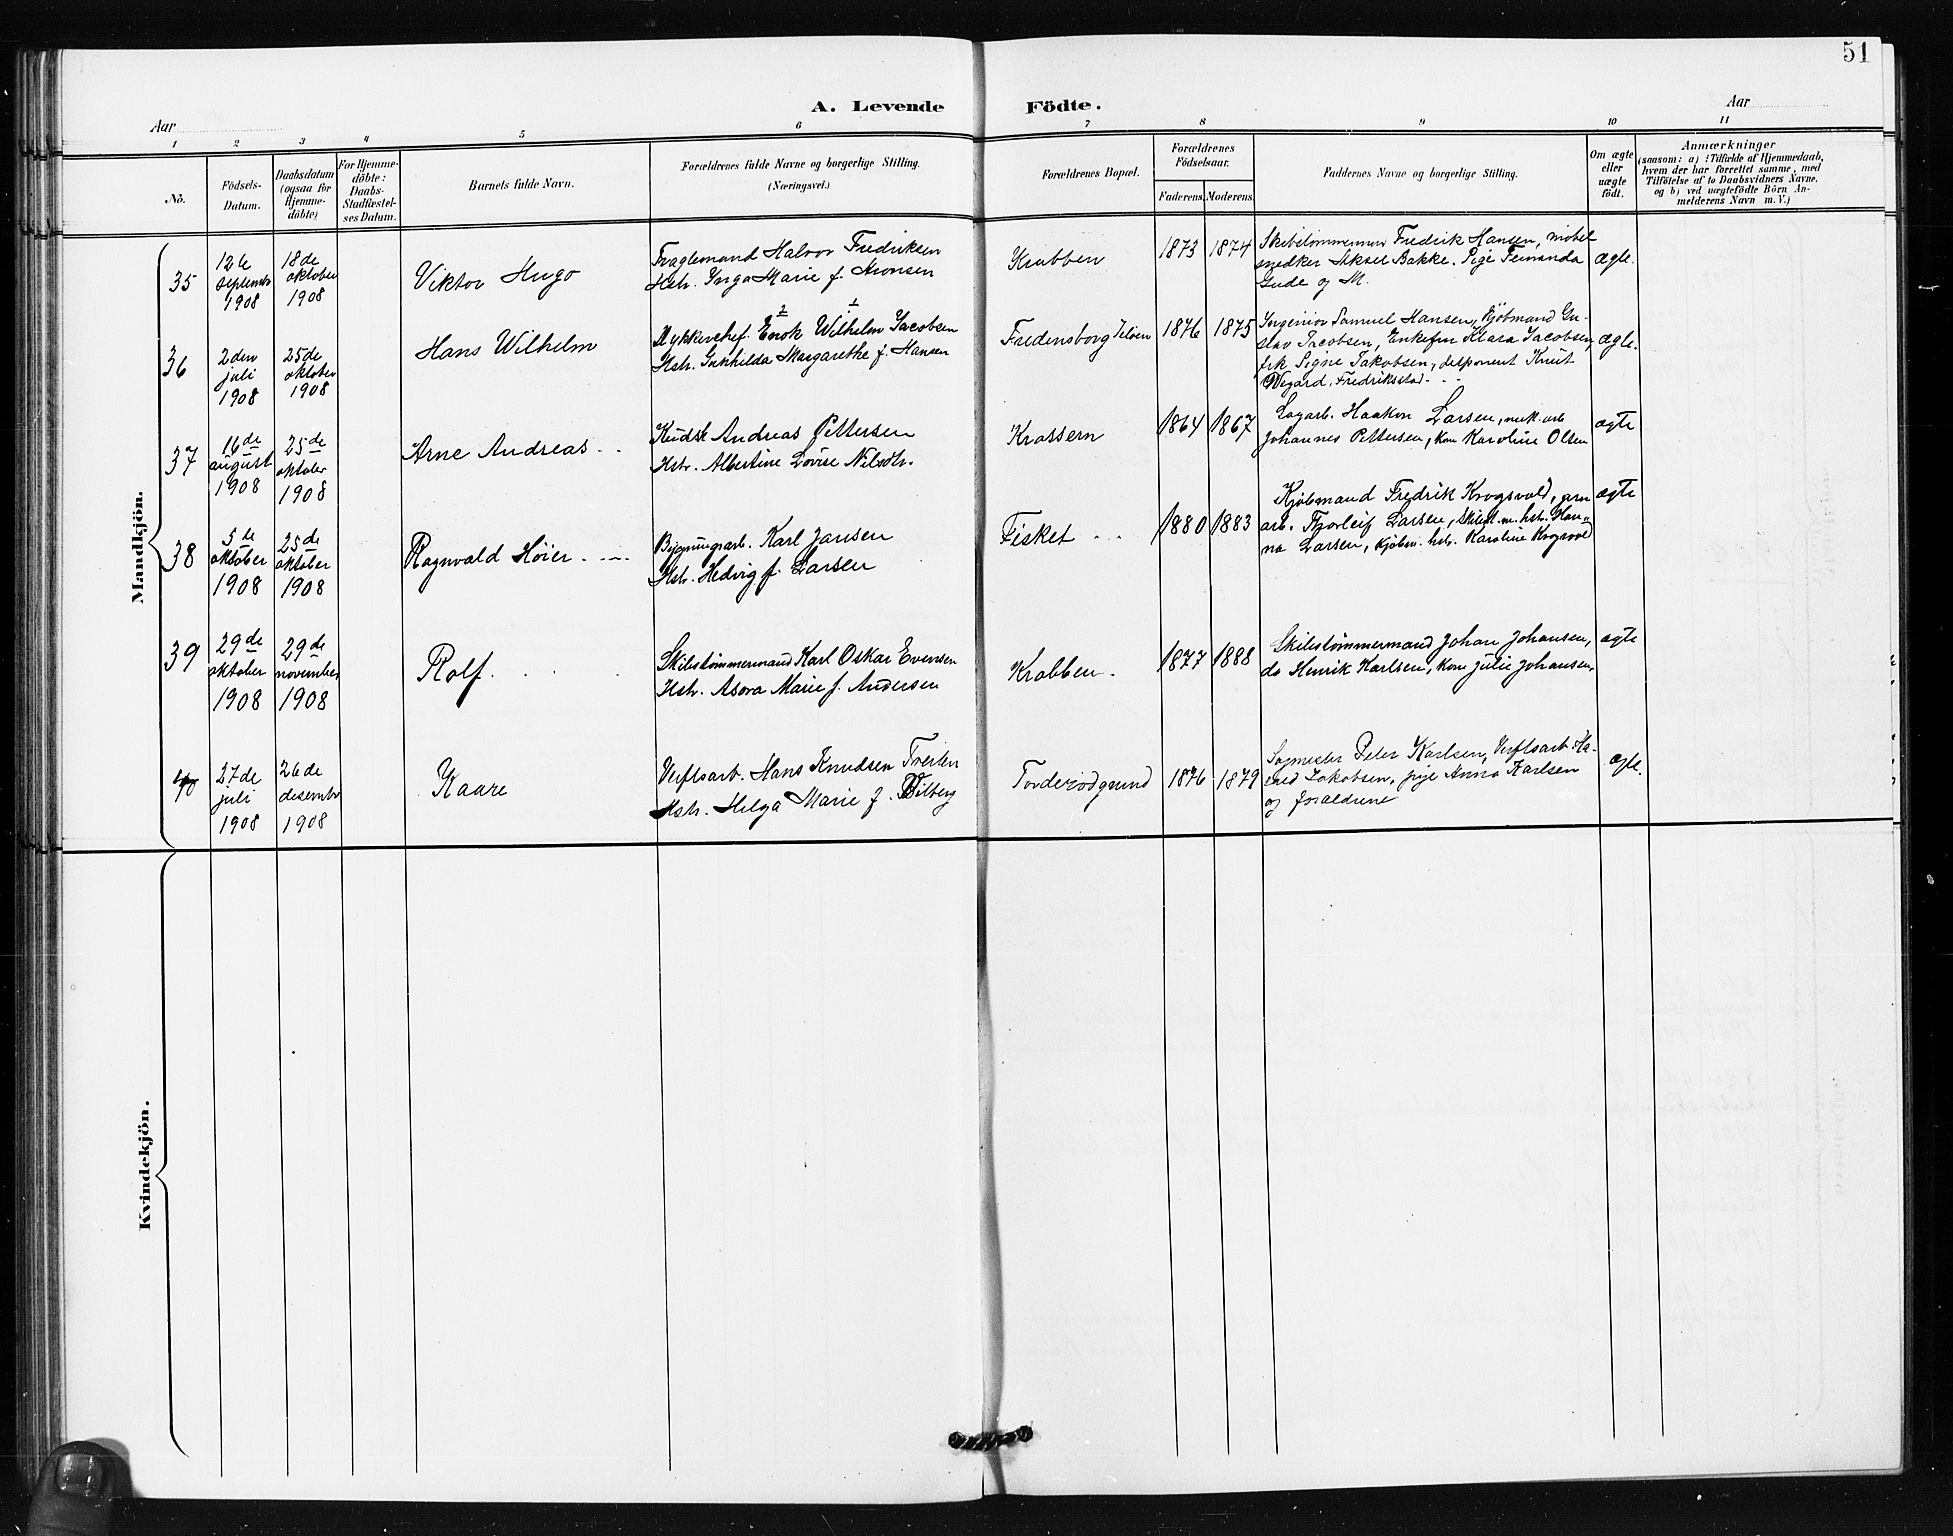 51
A. Levende Födte.
Aar
Aar
1 2 3 4 5 6 7 8 9 10 11
No.
Födsels-
Datum.
Daabsdatum
(ogsaa for
Hjemme-
döbte)
For Hjemme-
döbte:
Daabs-
Stadfæstel-
ses Datum.
Barnets fulde Navn.
Forældrenes fulde Navne og borgerlige Stilling.
(Næringsvei.)
Forældrenes Bopæl.
Forældrenes
Födselsaar.
Faderens. Moderens.
Faddernes Navne og borgerlige Stilling.
Om ægte
eller
uægte
födt.
Anmærkninger
(saasom: a) i Tilfælde af Hjemmedaab,
hvem der har forrettet samme, med
Tilföielse af to Daabsvidners Navne.
og b) ved uægtefödte Börn An-
melderens Navn m. V.)
Mandkjön.
35
12te
septembr
1908
18de
oktober
1908
Viktor Hugo
Halvor Fredriksen
Hstr. Inga Marie f. Aronsen
Krabben
1873
1874
Fredrik Hansen, möbel
snedker Aksel Bakke. Pige Fernanda
Gude og M.
ægte.
36
2den
juli
1908
25de
oktober
1908
Hans Wilhelm
2 1
Dykkerchef Enok Wilhelm Jacobsen
Hstr. Margarethe f. Hansen
Fredensborg
1876
1875
Ingeniör Samuel Hansen, Kjöbmand Gu-
stav Jacobsen, Enkefru Klara Jacobsen,
frk Signe Jakobsen, disponent Knut
Wegard, Fredriksstad - - -
ægte.
37
16de
august
1908
25de
oktober
1908
Arne Andreas - -
Kudsk Andreas Pettersen
Hstr. Albertine Lovise Nilsdtr.
Krossern
1864
1867
Sagarb. Haakon Larsen, mek. arb
Johannes Pettersen, Kone Karoline Olsen
ægte
38
5te
oktober
1908
25de
oktober
1908
Ragnvald Höier - -
Bygningsarb. Karl Jansen
Hstr. Hedvig f. Larsen
Fisket - -
1880
1883
Kjöbmand Fredrik Krogsvold,
arb. Thorleif Larsen, hstr. Han-
na Larsen, Kjöbm. hstr. Karoline Krogsvol
ægte
39
29de
oktober
1908
29de
november
1908
Rolf. - - -
Skibstömmermand Karl Oskar Evensen
Hstr. Asora Marie f. Andersen
Krabben.
1877
1888
Skibstömmermand Johan Johansen,
do Henrik Karlsen, Kone Julie Johansen.
ægte
40
27de
juli
1908
26de
desembr
1908
Kaare
Verftsarb. Hans Knudsen
Hstr. Helga Marie f. Wilberg
1876
1879
Sagmester Peter Karlsen, Verftsarb.
Jakobsen, pige Anna Karlsen
og foraldrene
ægte.
Kvindekjön.